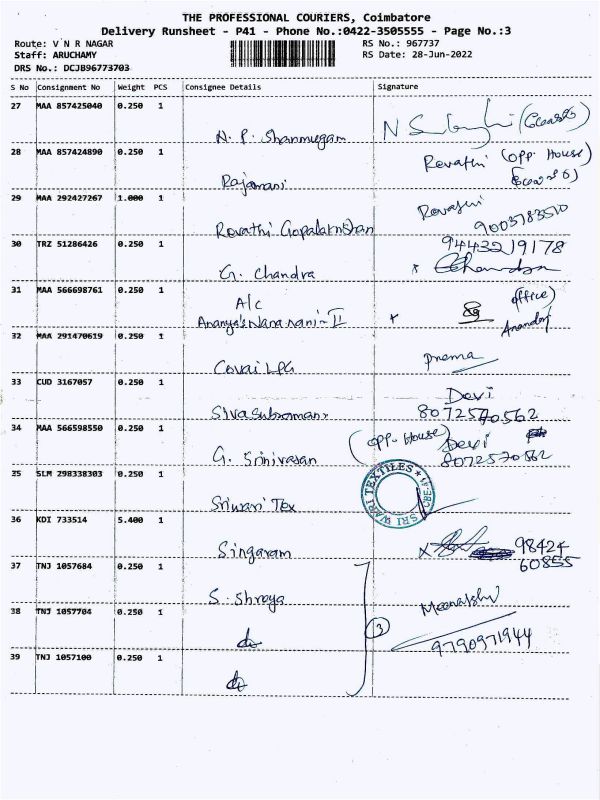 THE PROFESSIONAL COURIERS, Coimbatore
Delivery Runsheet - P41 - Phone No.:0422-3505555 - Page No.:3
Route: V N R NAGAR RS No.: 967737
Staff: ARUCHAMY RS Date: 28-Jun-2022
DRS No.: DCJB96773703
S No Consignment No Weight PCS Consignee Details Signature
27 MAA 857425040 0.250 1
N. P. Shanmugam
28 MAA 857424890 0.250 1 Revathi (opp. House)
Rajamani
29 MAA 292427267 1.000 1 Revathi
Revathi Gopalakrishan 9003783510
30 TRZ 51286426 0.250 1 9443219178
G. Chandra x Chandra
31 MAA 566698761 0.250 1 (office)
A/c
Ananya's Nana nani - II x
32 MAA 291470619 0.250 1
Covai LPG prema
33 CUD 3167057 0.250 1 Devi
Siva Subramani 8072570562
34 MAA 566598550 0.250 1 (opp. House) Devi
G. Srinivasan 8072570562
35 SLM 298338303 0.250 1
SRI WARI TEXTILES CBE
Sriwari Tex
36 KDI 733514 5.400 1
Singaram x 98424
60855
37 TNJ 1057684 0.250 1
S. Shreya
38 TNJ 1057704 0.250 1 Meenakshi
do (3) 9790971944
39 TNJ 1057100 0.250 1
do